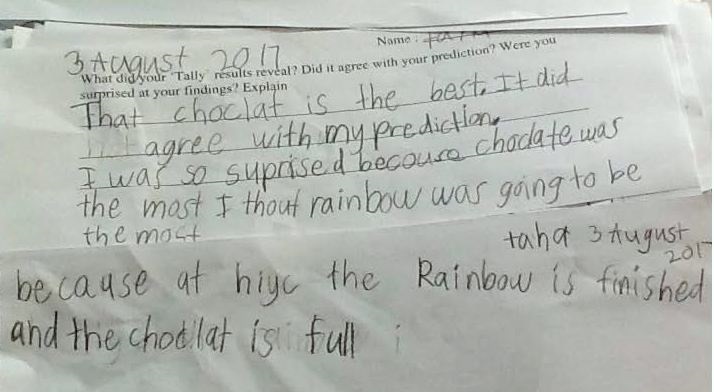 Name : taha
3 August 2017
What did your 'Tally' results reveal? Did it agree with your prediction? Were you
surprised at your findings? Explain
That choclat is the best. It did
agree with my prediction.
I was so suprised becouse choclate was
the most I thout rainbow was going to be
the most
taha 3 August
2017
because at hiyc the Rainbow is finished
and the choclat is full